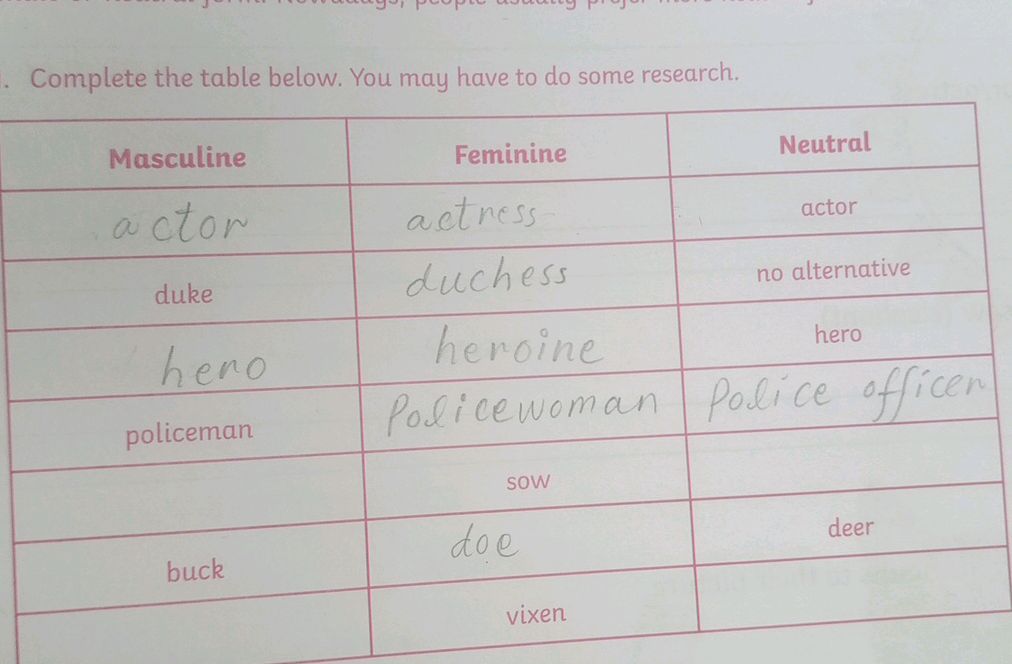 . Complete the table below. You may have to do some research.
Masculine Feminine Neutral
actor actress actor
duke duchess no alternative
hero heroine hero
policeman Policewoman Police officer
sow
buck doe deer
vixen